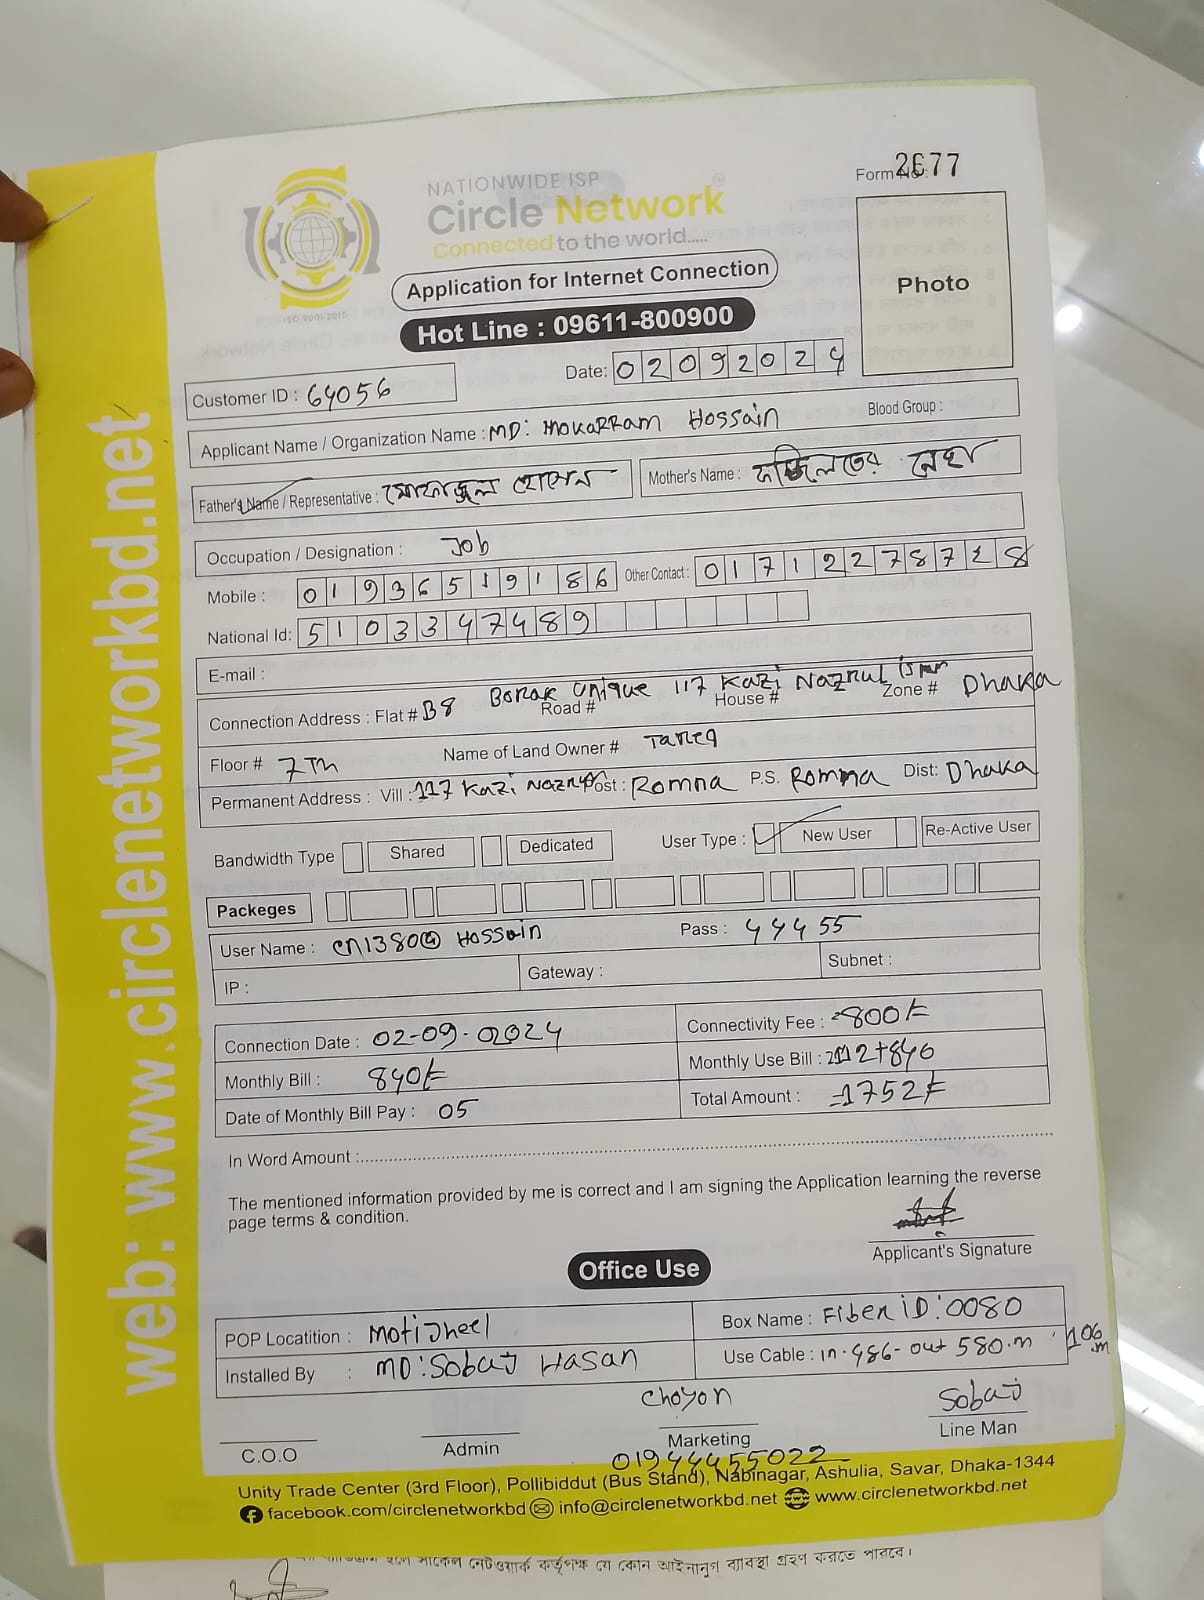 NATIONWIDE ISP
Circle Network TM
Connected to the world.....
ISO 9001:2010
Form No : 2677
Application for Internet Connection
Photo
Hot Line : 09611-800900
Date: 02092024
Customer ID : 64056
Applicant Name / Organization Name : MD: MOKARRAM HOSSAIN Blood Group :
Father's Name / Representative : মোফাজ্জল হোসেন Mother's Name :
Occupation / Designation : Job
Mobile : 01936519186 Other Contact : 01712278728
National Id: 5103347489
E-mail :
Borak Unique 117 Kazi Nazrul
Connection Address : Flat # B8 Road # House # Zone # Dhaka
Floor # 7Th Name of Land Owner # Tareq
Permanent Address : Vill : 117 Kazi Post : Romna P.S. Romna Dist: Dhaka
Bandwidth Type Shared Dedicated User Type : New User Re-Active User
Packeges
User Name : CN1380@ HOSSain Pass : 44455
IP : Gateway : Subnet :
Connection Date : 02-09-2024 Connectivity Fee : 800/=
Monthly Bill : 840/= Monthly Use Bill : 112+840
Date of Monthly Bill Pay : 05 Total Amount : =1752/=
In Word Amount :
The mentioned information provided by me is correct and I am signing the Application learning the reverse
page terms & condition.
Applicant's Signature
Office Use
POP Locatition : Motijheel Box Name : Fiber iD:0080
Installed By : MD:Sobaj Hasan Use Cable : in-486-out 580.m 106.m
Choyon Sobaj
C.O.O Admin Marketing Line Man
01944455022
Unity Trade Center (3rd Floor), Pollibiddut (Bus Stand), Nabinagar, Ashulia, Savar, Dhaka-1344
facebook.com/circlenetworkbd info@circlenetworkbd.net www.circlenetworkbd.net
web: www.circlenetworkbd.net
হলে সার্কেল নেটওয়ার্ক কর্তৃপক্ষ যে কোন আইনানুগ ব্যাবস্থা গ্রহণ করতে পারবে।